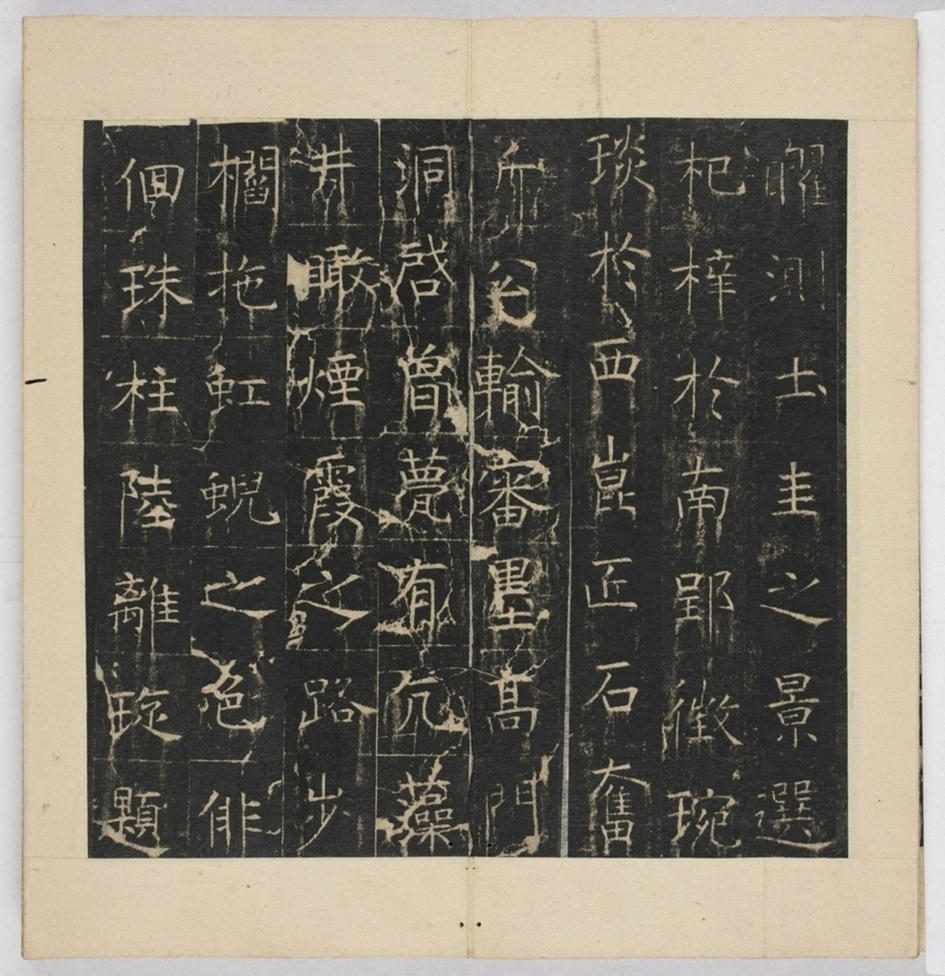 曜測土圭之景選
杞梓於南郢徵琬
琰於西崑匠石奮
斤公輸審墨髙門
洞啓曽甍有亢藻
井瞰煙霞之路步
櫩拖虹蜺之色俳
佪珠柱陸離琁題